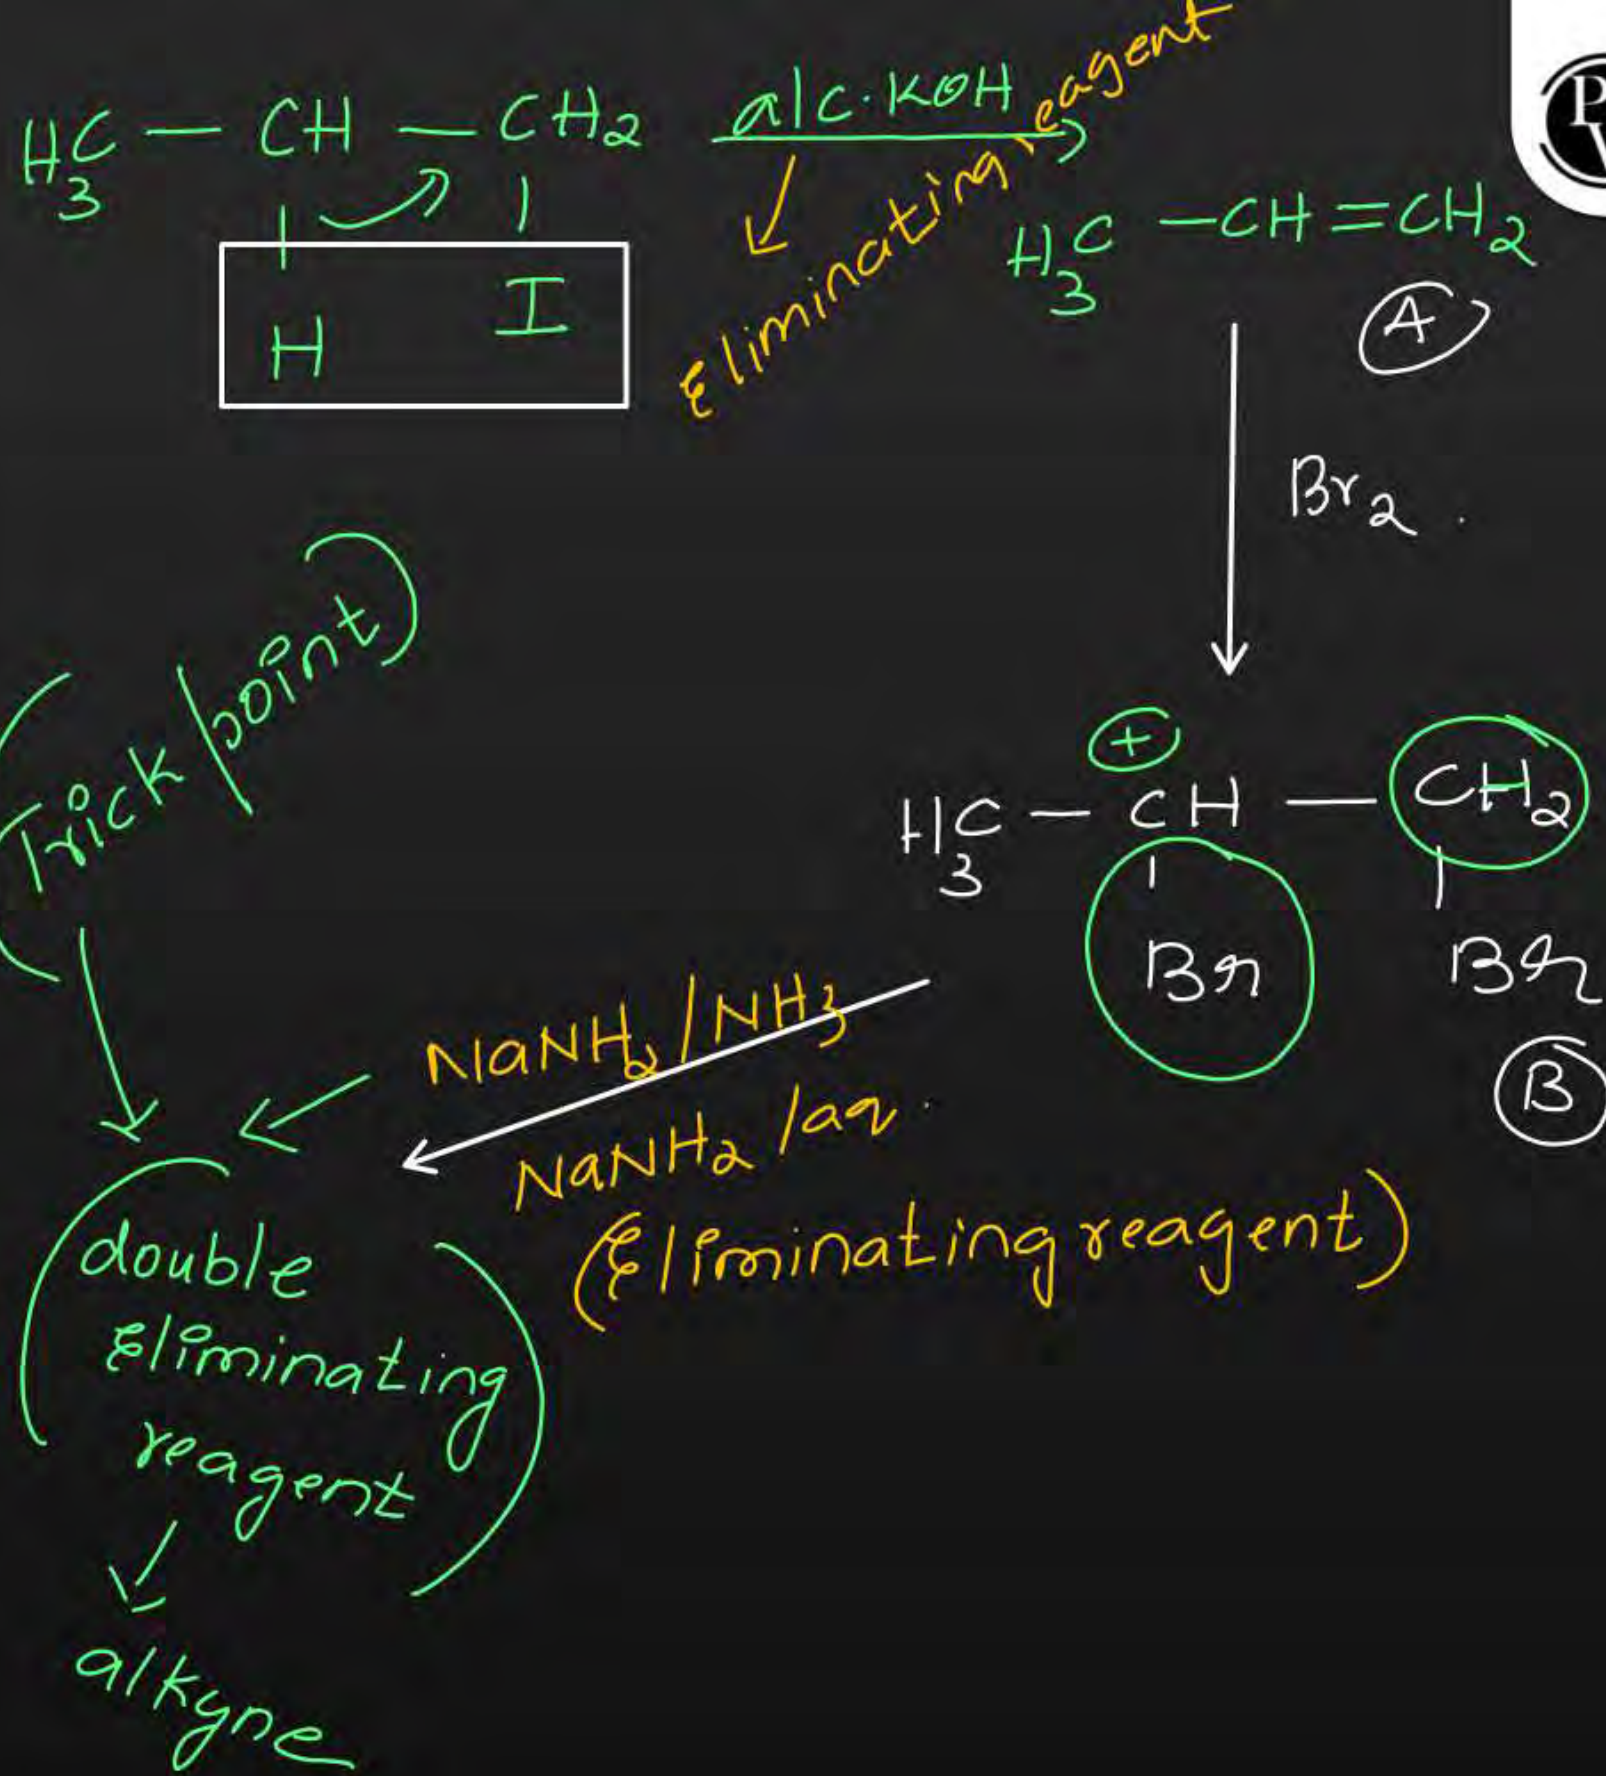 H3C — CH — CH2 alc. KOH
H I
Eliminating reagent
H3C — CH = CH2
A
Br2
(Trick/point)
+
H3C — CH — CH2
Br Br
B
NaNH2/NH3
NaNH2/aq.
(Eliminating reagent)
(double
Eliminating
reagent)
alkyne